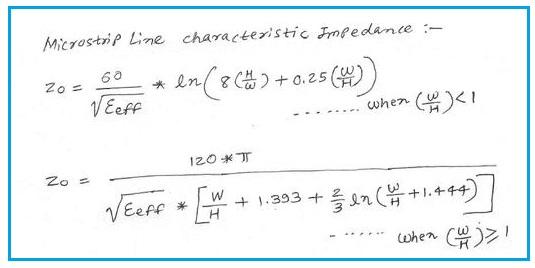 Microstrip Line characteristic Impedance :-
Zo = 60 / √Eeff * ln(8(H/W) + 0.25(W/H))
........ when (W/H) < 1
Zo = 120 * π / √Eeff * [W/H + 1.393 + 2/3 ln(W/H + 1.444)]
- ...... when (W/H) ≥ 1